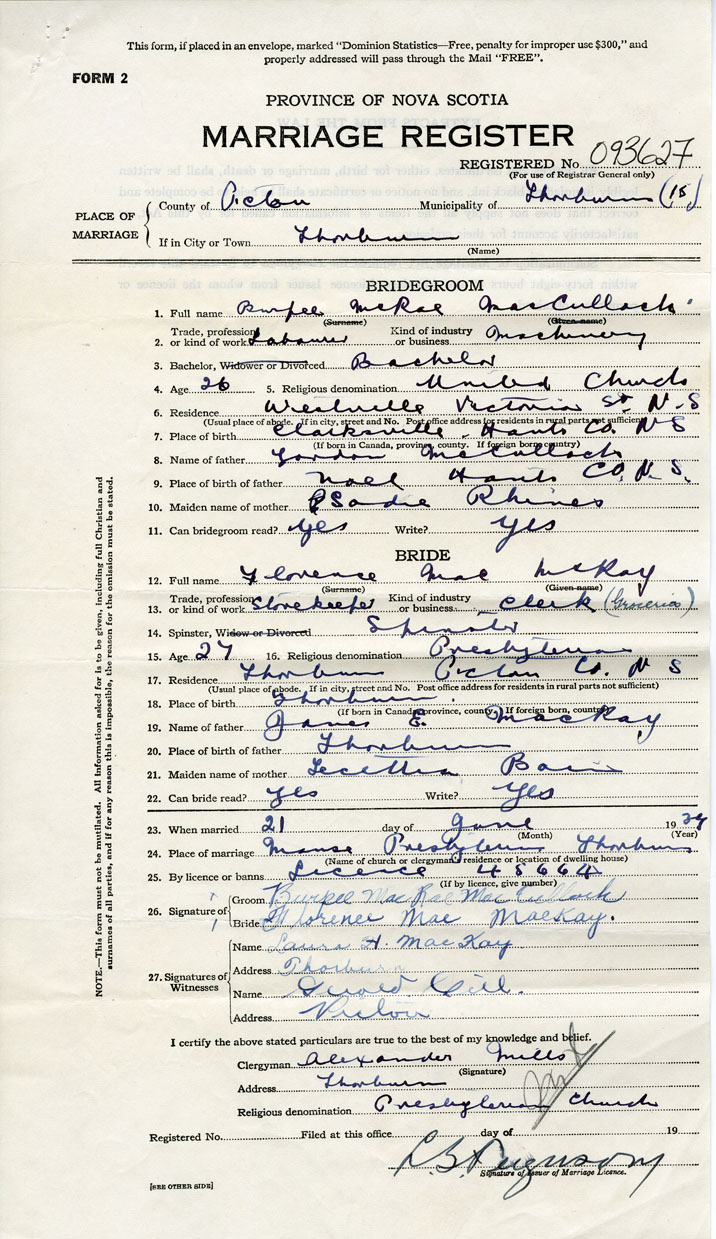 This form, if placed in an envelope, marked "Dominion Statistics—Free, penalty for improper use $300," and
properly addressed will pass through the Mail "FREE".
FORM 2
PROVINCE OF NOVA SCOTIA
MARRIAGE REGISTER
REGISTERED No. 093627
(For use of Registrar General only)
PLACE OF MARRIAGE
County of Pictou Municipality of Thorburn (15)
If in City or Town Thorburn
(Name)
BRIDEGROOM
1. Full name Burpee McRae MacCulloch
(Surname) (Given name)
Trade, profession Kind of industry
2. or kind of work Labourer or business Machinery
3. Bachelor, Widower or Divorced Bachelor
4. Age 26 5. Religious denomination United Church
6. Residence Westville Victoria St. N.S
(Usual place of abode. If in city, street and No. Post office address for residents in rural parts not sufficient)
7. Place of birth Clarksville Hants Co. NS
(If born in Canada, province, county. If foreign born, country)
8. Name of father Gordon McCulloch
9. Place of birth of father Noel Hants Co. N.S.
10. Maiden name of mother Sadie Rhines
11. Can bridegroom read? Yes Write? Yes
BRIDE
12. Full name Florence Mae McKay
(Surname) (Given name)
Trade, profession Kind of industry
13. or kind of work Storekeeper or business Clerk (Groceries)
14. Spinster, Widow or Divorced Spinster
15. Age 27 16. Religious denomination Presbyterian
17. Residence Thorburn Pictou Co. N S
(Usual place of abode. If in city, street and No. Post office address for residents in rural parts not sufficient)
18. Place of birth Thorburn
(If born in Canada, province, county. If foreign born, country)
19. Name of father James E. MacKay
20. Place of birth of father Thorburn
21. Maiden name of mother Bain
22. Can bride read? Yes Write? Yes
23. When married 21 day of June 19
(Month) (Year)
24. Place of marriage Manse Presbyterian Thorburn
(Name of church or clergyman's residence or location of dwelling house)
25. By licence or banns Licence 45664
(If by licence, give number)
26. Signature of
Groom Burpee MacRae MacCulloch
Bride Florence Mae MacKay.
27. Signatures of Witnesses
Name Laura H. MacKay
Address Thorburn
Name Gerald Gill.
Address Pictou
I certify the above stated particulars are true to the best of my knowledge and belief.
Clergyman Alexander Mills
(Signature)
Address Thorburn
Religious denomination Presbyterian Church
Registered No. Filed at this office day of 19
Ferguson
Signature of Issuer of Marriage Licence.
[SEE OTHER SIDE]
NOTE.—This form must not be mutilated. All Information asked for is to be given, including full Christian and
surnames of all parties, and if for any reason this is impossible, the reason for the omission must be stated.